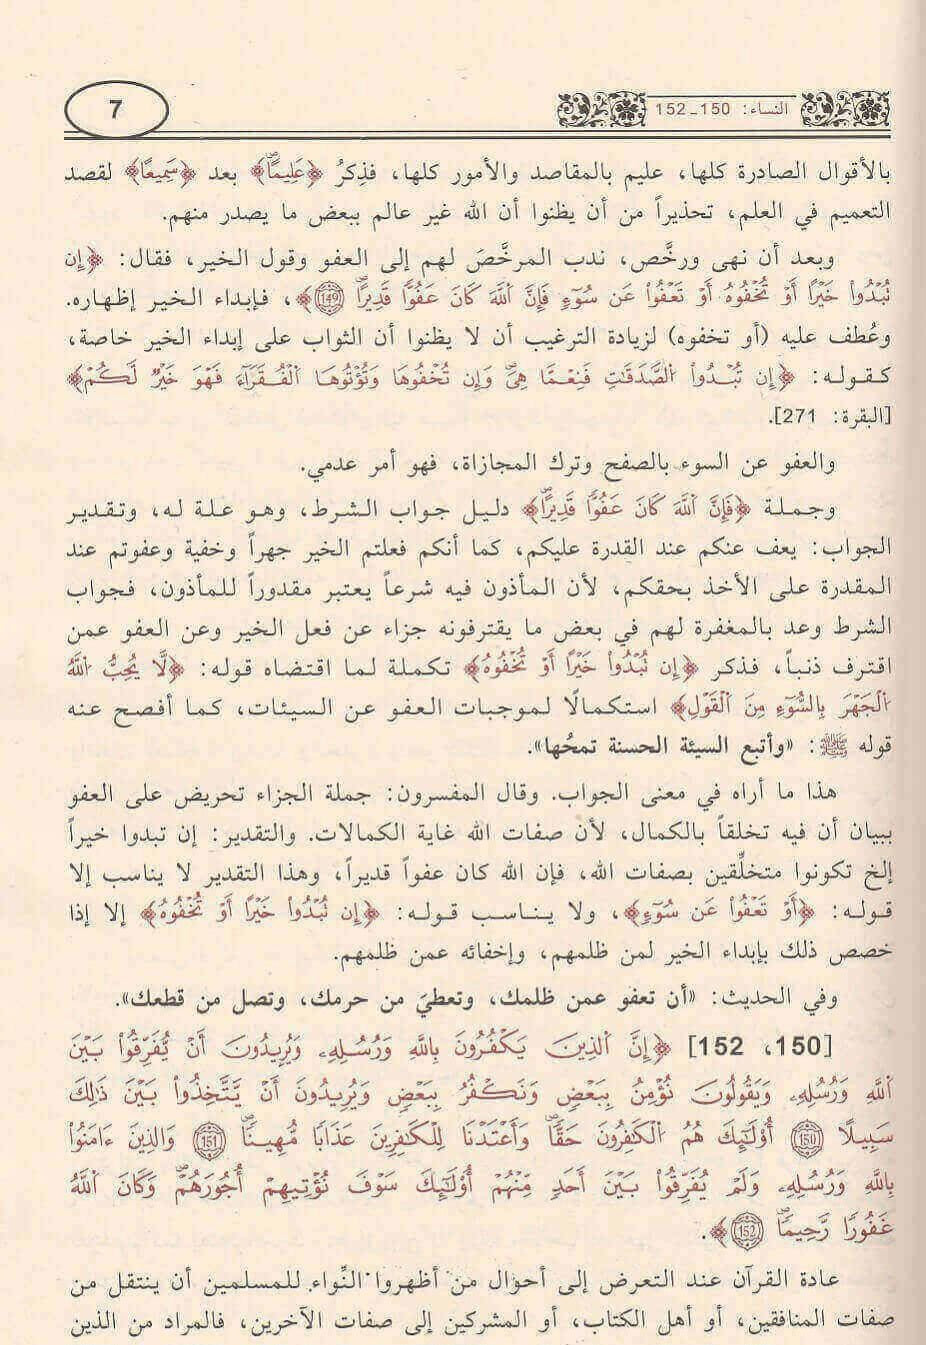 النساء: 150ـ152
7
بالأقوال الصادرة كلها، عليم بالمقاصد والأمور كلها، فذِكرُ ﴿عَلِيمًا﴾ بعد ﴿سَمِيعًا﴾ لقصد
التعميم في العلم، تحذيراً من أن يظنوا أن الله غير عالم ببعض ما يصدر منهم.
وبعد أن نهى ورخَّص، ندب المرخَّصَ لهم إلى العفو وقول الخير، فقال: ﴿إِن
تُبْدُوا۟ خَيْرًا أَوْ تُخْفُوهُ أَوْ تَعْفُوا۟ عَن سُوٓءٍ فَإِنَّ اَللَّهَ كَانَ عَفُوًّا قَدِيرًاۖ (149)﴾، فإبداء الخير إظهاره.
وعُطف عليه (أو تخفوه) لزيادة الترغيب أن لا يظنوا أن الثواب على إبداء الخير خاصة،
كقوله: ﴿إِن تُبْدُوا۟ اُلصَّدَقَٰتِ فَنِعْمَّا هِيَۖ وَإِن تُخْفُوهَا وَتُؤْتُوهَا اَلْفُقَرَآءَ فَهُوَ خَيْرٌ لَّكُمْ﴾
[البقرة: 271].
والعفو عن السوء بالصفح وترك المجازاة، فهو أمر عدمي.
وجملة ﴿فَإِنَّ اَللَّهَ كَانَ عَفُوًّا قَدِيرًاۖ﴾ دليل جواب الشرط، وهو علة له، وتقدير
الجواب: يعف عنكم عند القدرة عليكم، كما أنكم فعلتم الخير جهراً وخفية وعفوتم عند
المقدرة على الأخذ بحقكم، لأن المأذون فيه شرعاً يعتبر مقدوراً للمأذون، فجواب
الشرط وعد بالمغفرة لهم في بعض ما يقترفونه جزاء عن فعل الخير وعن العفو عمن
اقترف ذنباً، فذكر ﴿إِن تُبْدُوا۟ خَيْرًا أَوْ تُخْفُوهُ﴾ تكملة لما اقتضاه قوله: ﴿لَّا يُحِبُّ اُللَّهُ
اُلْجَهْرَ بِالسُّوٓءِ مِنَ اَلْقَوْلِ﴾ استكمالًا لموجبات العفو عن السيئات، كما أفصح عنه
قوله ﷺ: «وأتبع السيئة الحسنة تمحُها».
هذا ما أراه في معنى الجواب. وقال المفسرون: جملة الجزاء تحريض على العفو
ببيان أن فيه تخلقاً بالكمال، لأن صفات الله غاية الكمالات. والتقدير: إن تبدوا خيراً
إلخ تكونوا متخلِّقين بصفات الله، فإن الله كان عفواً قديراً، وهذا التقدير لا يناسب إلا
قوله: ﴿أَوْ تَعْفُوا۟ عَن سُوٓءٍ﴾، ولا يناسب قوله: ﴿إِن تُبْدُوا۟ خَيْرًا أَوْ تُخْفُوهُ﴾ إلا إذا
خصص ذلك بإبداء الخير لمن ظلمهم، وإخفائه عمن ظلمهم.
وفي الحديث: «أن تعفو عمن ظلمك، وتعطيَ من حرمك، وتصل من قطعك».
[150، 152] ﴿إِنَّ اَلذِينَ يَكْفُرُونَ بِاللَّهِ وَرُسُلِهِۦ وَيُرِيدُونَ أَنْ يُّفَرِّقُوا۟ بَيْنَ
اَللَّهِ وَرُسُلِهِۦ وَيَقُولُونَ نُؤْمِنُ بِبَعْضٍ وَنَكْفُرُ بِبَعْضٍ وَيُرِيدُونَ أَنْ يَّتَّخِذُوا۟ بَيْنَ ذَٰلِكَ
سَبِيلًا (150) أُو۟لَٰٓئِكَ هُمُ اُلْكَٰفِرُونَ حَقًّاۖ وَأَعْتَدْنَا لِلْكَٰفِرِينَ عَذَابًا مُّهِينًاۖ (151) وَالذِينَ ءَامَنُوا۟
بِاللَّهِ وَرُسُلِهِۦ وَلَمْ يُفَرِّقُوا۟ بَيْنَ أَحَدٍ مِّنْهُمْ أُو۟لَٰٓئِكَ سَوْفَ نُؤْتِيهِمْ أُجُورَهُمْۖ وَكَانَ اَللَّهُ
غَفُورًا رَّحِيمًاۖ (152)﴾.
عادة القرآن عند التعرض إلى أحوال من أظهروا النِّواء للمسلمين أن ينتقل من
صفات المنافقين، أو أهل الكتاب، أو المشركين إلى صفات الآخرين، فالمراد من الذين